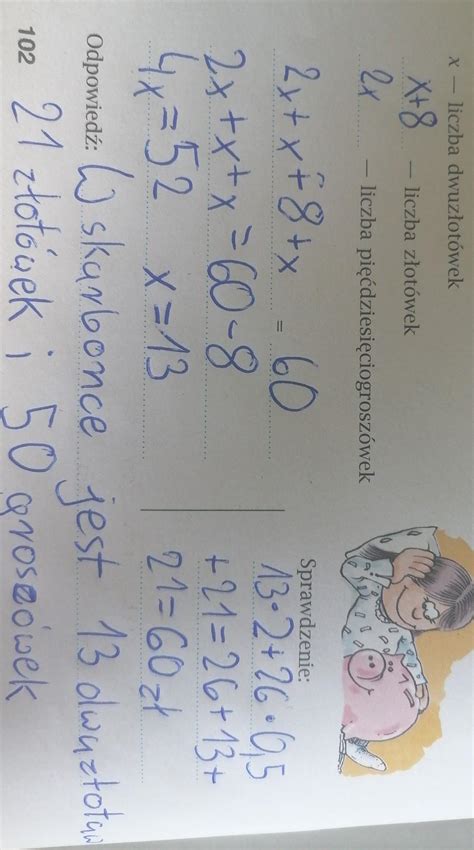 x — liczba dwuzłotówek
x+8 — liczba złotówek
2x — liczba pięćdziesięciogroszówek
2x+x+8+x = 60
2x+x+x=60-8
4x=52 x=13
Sprawdzenie:
13·2+26·0,5
+21=26+13+
21=60zł
Odpowiedź: W skarbonce jest 13 dwuzłotów
21 złotówek i 50 groszówek
102